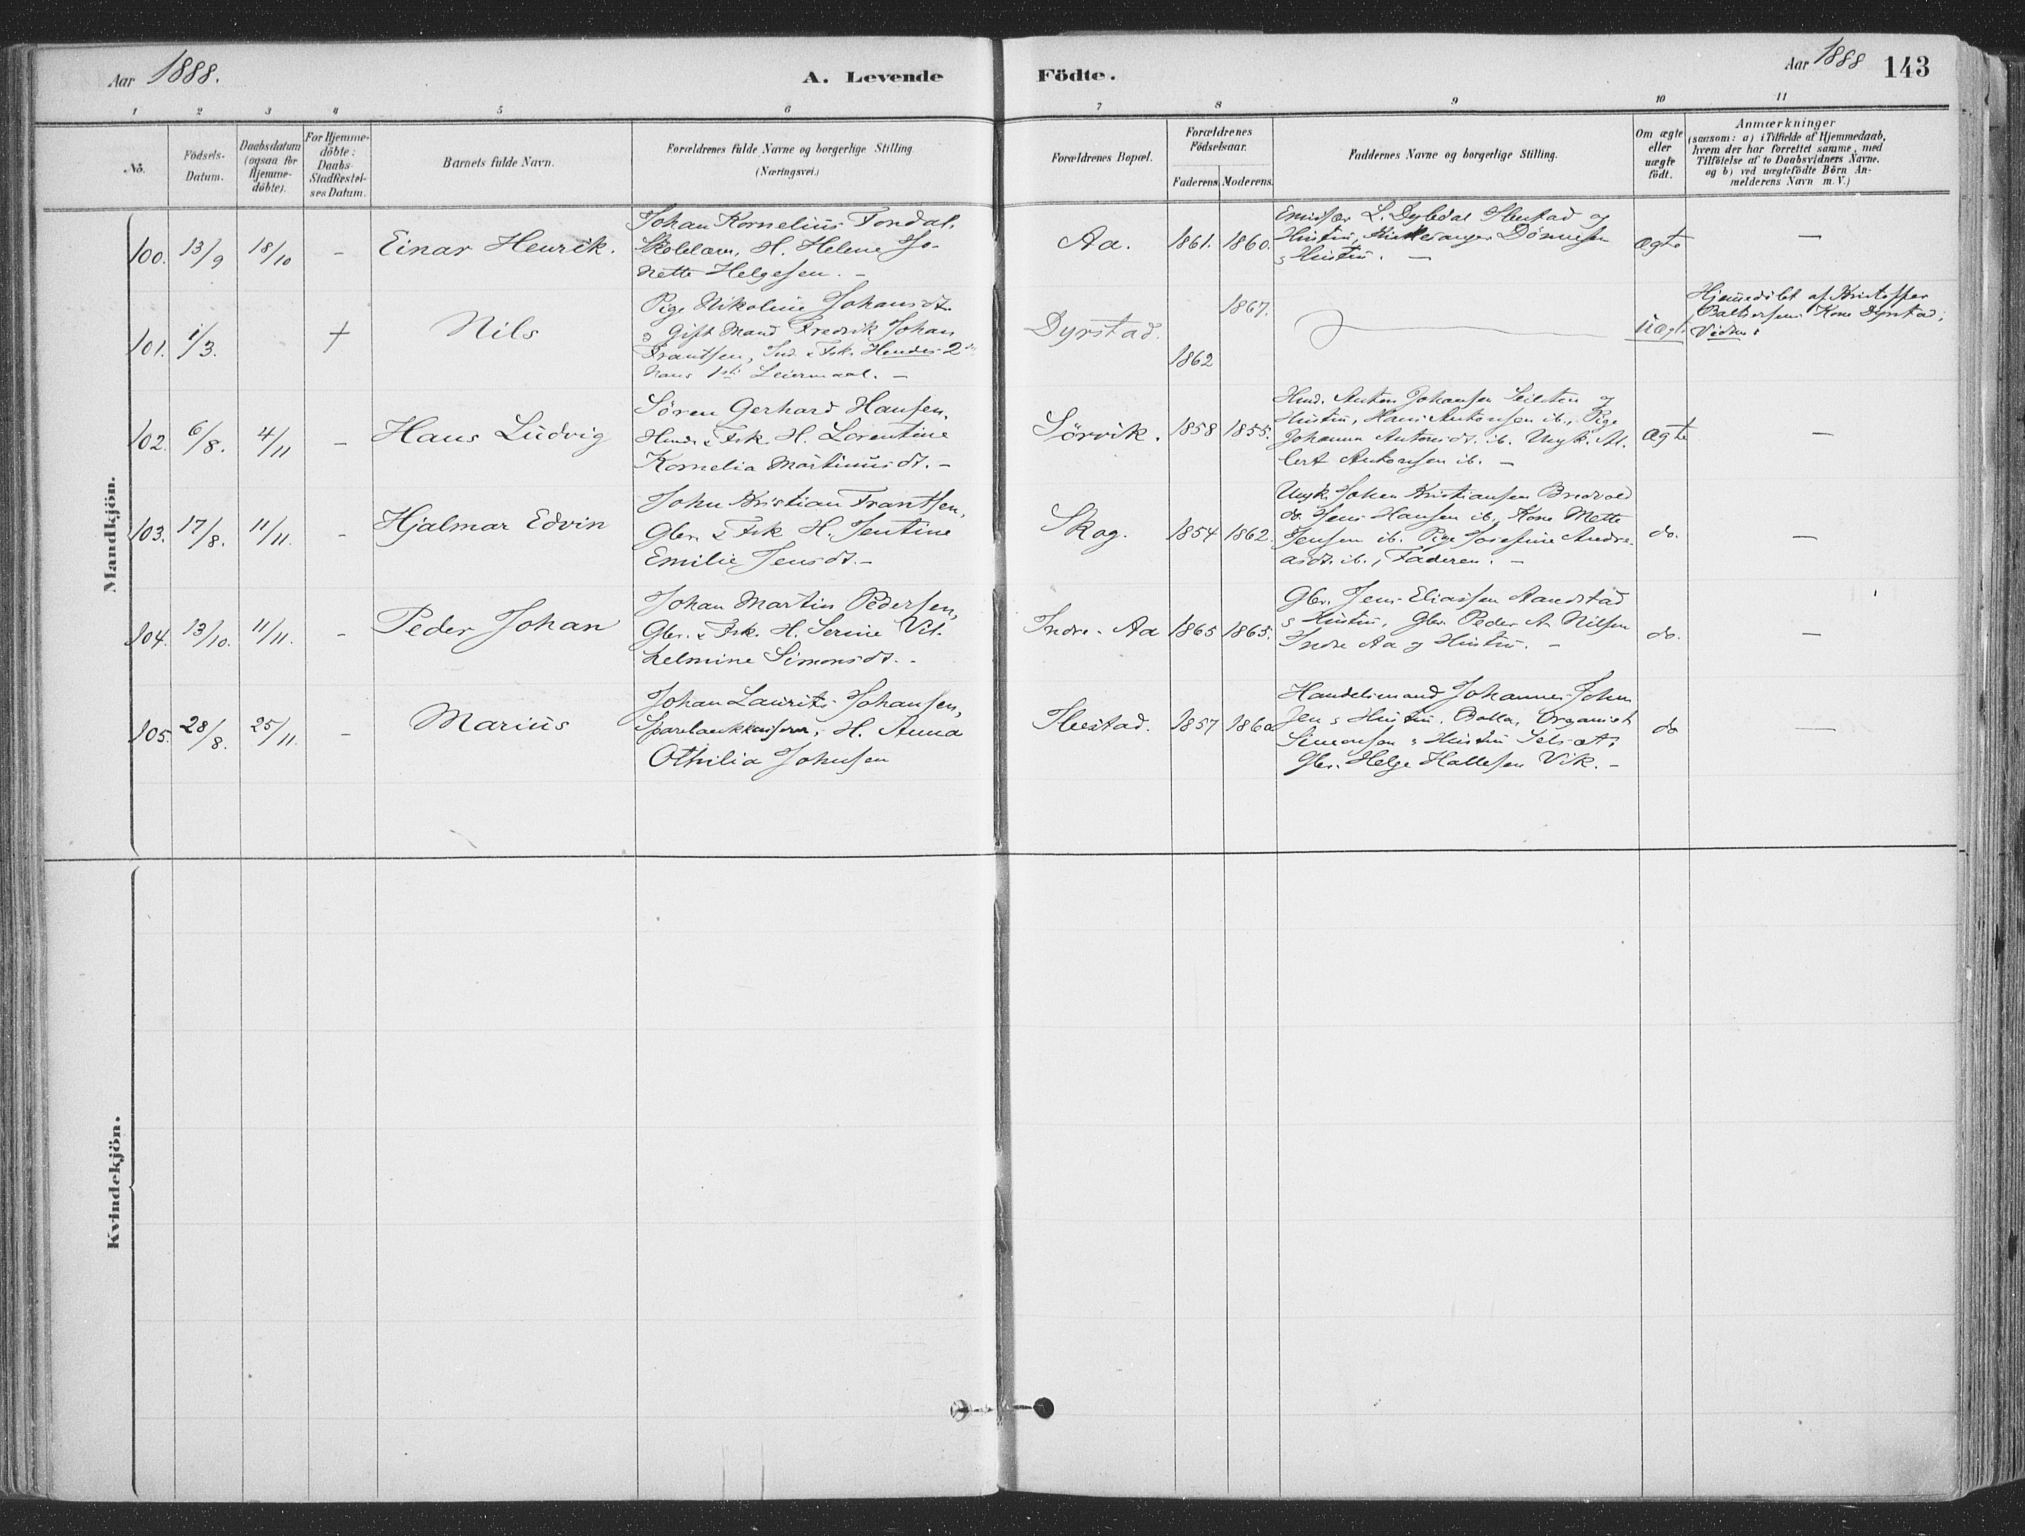 Aar 1888.
A. Levende
Födte.
Aar 1888
143
1 2 3 4 5 6 7 8 9 10 11
No.
Födsels-
Datum.
Daabsdatum
(ogsaa for
Hjemme-
döbte).
For Hjemme-
döbte:
Daabs-
Stadfæstel-
ses Datum.
Barnets fulde Navn.
Forældrenes fulde Navne og borgerlige Stilling
(Næringsvei.)
Forældrenes Bopæl.
Forældrenes
Födselsaar.
Faderens Moderens
Faddernes Navne og borgerlige Stilling.
Om ægte
eller
uægte
födt.
Anmærkninger
(saasom: a) i Tilfælde af Hjemmedaab,
hvem der har forrettet samme, med
Tilföielse af to Daabsvidners Navne.
og b) ved uægtefödte Börn An-
melderens Navn m. V.)
Mandkjön.
100. 13/9 18/10 - Einar Henrik.
Johan Kornelius Fondal.
Skolelær. H. Helene Jo-
nette Helgesen. -
Aa. 1861. 1860.
L. Dybdal og
Hustru, Dönnesen
Hustru. -
ægte —
101. 1/3. + Nils
Pige Nikoline Johansdt.
o Gift Mand Fredrik Johan
Frantsen, Ind. & Fsk. Hendes 2
hans 1ste Leiermaal. -
Dyrstad. 1862 1867.
Uægt.
Hjemmedöbt af Kristoffer
Baltsersens Kone Dyrstad;
102. 6/8. 4/11 - Hans Ludvig
Sören Gerhard Hansen.
Hmd. & Fsk. H. Lorentine
Kornelia Martinusdt. -
Sörvik. 1858 1855.
Hmd. Anton Johansen og
Hustru, Hans Antonsen ib., Pige
Johanna Antonsdt. ib. Ungk. Al-
bert Antonsen ib. -
ægte —
103. 17/8. 11/11. - Hjalmar Edvin
John Kristian Frantsen,
Gbr. & Fsk H. Jentine
Emilie Jensdt. -
Skog. 1854 1862.
Ungk. Johan Kristiansen Bredvold
do. Jens Hansen ib., Kone Mette
Jensen ib. Pige Josefine Andre-
asdt. ib., Faderen. -
do. —
104. 13/10. 11/11. - Peder Johan
Johan Martin Pedersen,
Gbr. & Fsk. H. Serine Vil-
helmine Simonsdt. -
Indre-Aa 1865 1865.
Gbr. Jens Eliassen Aandstad
o Hustru, Gbr. Peder A. Nilsen
Indre Aa og Hustru. -
do. —
105. 28/8. 25/11. - Marius
Johan Laurits Johansen,
H. Anna
Othilia Johnsen
1857 1860
Handelsmand Johannes John-
sen o Hustru. Organist
Simonsen o Hustru
Gbr. Helge Hallesen Vik. -
do —
Kvindekjön.